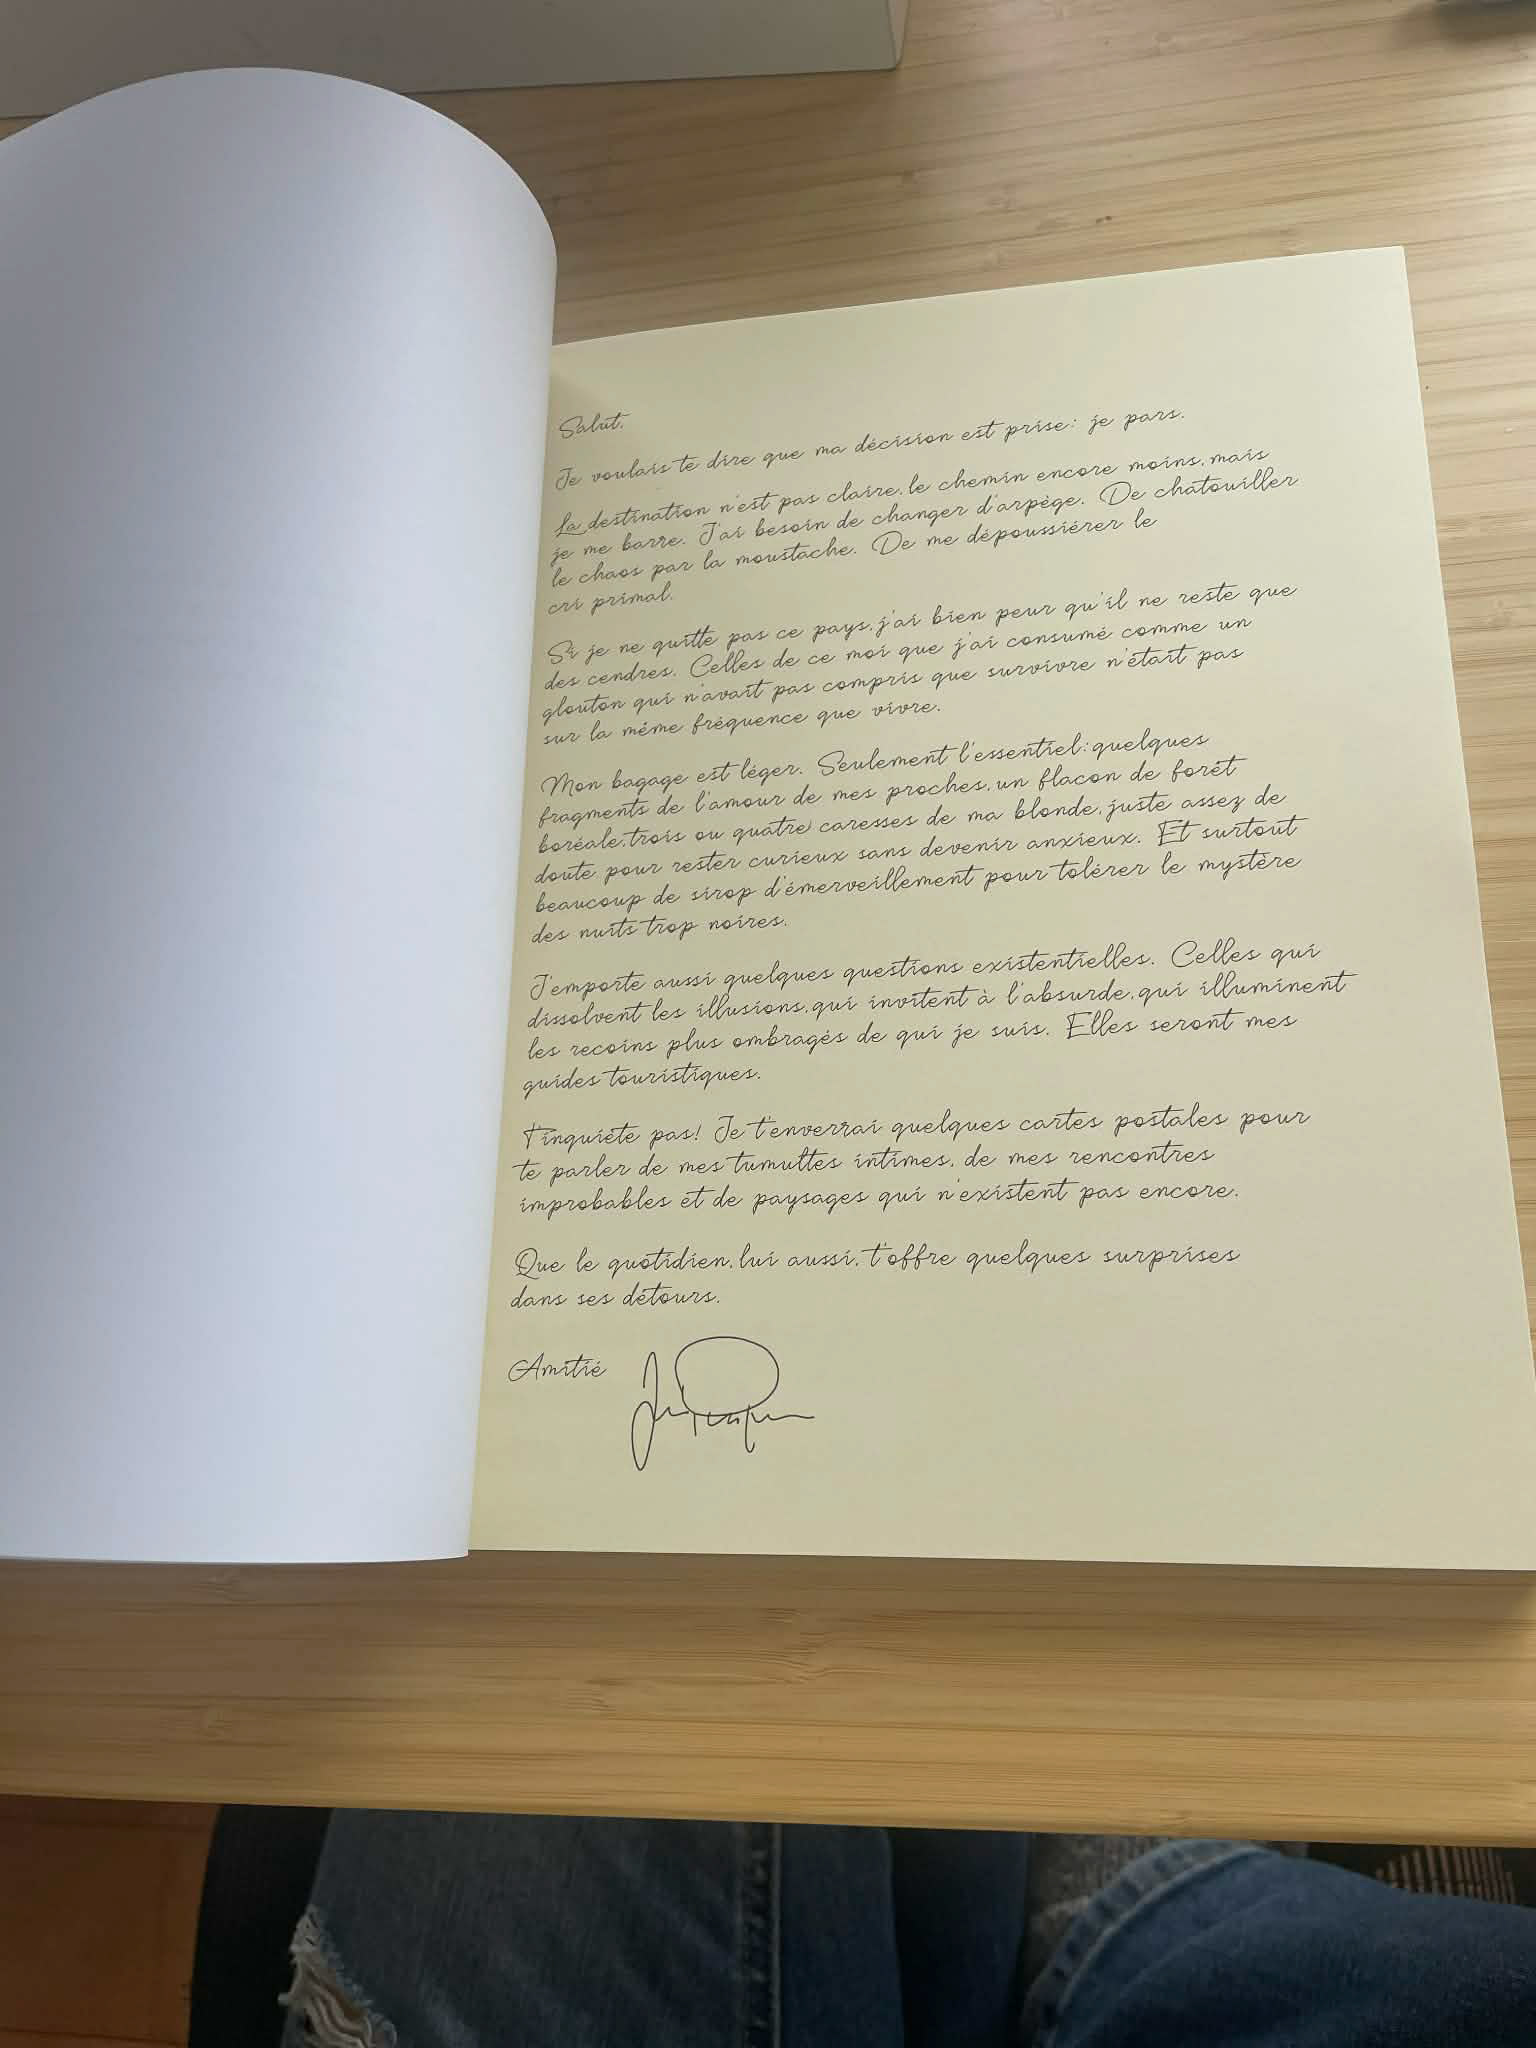 Salut,
Je voulais te dire que ma décision est prise: je pars.
La destination n'est pas claire, le chemin encore moins, mais
je me barre. J'ai besoin de changer d'arpège. De chatouiller
le chaos par la moustache. De me dépoussiérer le
cri primal.
Si je ne quitte pas ce pays, j'ai bien peur qu'il ne reste que
des cendres. Celles de ce moi que j'ai consumé comme un
glouton qui n'avait pas compris que survivre n'était pas
sur la même fréquence que vivre.
Mon bagage est léger. Seulement l'essentiel: quelques
fragments de l'amour de mes proches, un flacon de forêt
boréale, trois ou quatre caresses de ma blonde, juste assez de
doute pour rester curieux sans devenir anxieux. Et surtout
beaucoup de sirop d'émerveillement pour tolérer le mystère
des nuits trop noires.
J'emporte aussi quelques questions existentielles. Celles qui
dissolvent les illusions, qui invitent à l'absurde, qui illuminent
les recoins plus ombragés de qui je suis. Elles seront mes
guides touristiques.
T'inquiète pas! Je t'enverrai quelques cartes postales pour
te parler de mes tumultes intimes, de mes rencontres
improbables et de paysages qui n'existent pas encore.
Que le quotidien, lui aussi, t'offre quelques surprises
dans ses détours.
Amitié